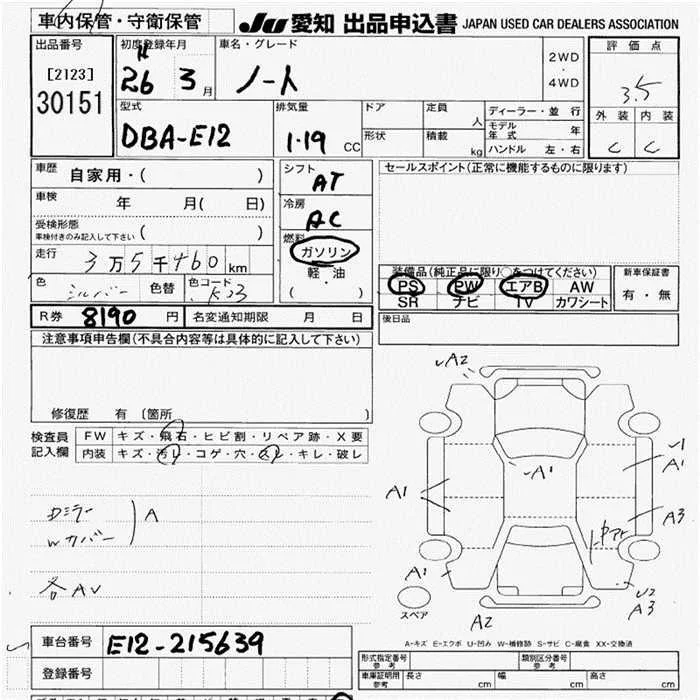 車内保管・守衛保管
JU 愛知 出品申込書 JAPAN USED CAR DEALERS ASSOCIATION
出品番号
[2123]
30151
初度登録年月
H
26 3 月
車名・グレード
ノート
2WD
・
4WD
評価点
3.5
外装 内装
C C
型式
DBA-E12
排気量
1.19 CC
ドア
形状
定員 人
積載 kg
ディーラー・並行
モデル年式 年
ハンドル 左・右
車歴 自家用・( )
車検 年 月( 日)
受検形態
車検付きのみ記入して下さい ( )
走行 3万5千460km
色 シルバー 色替 色コード K23
シフト
AT
冷房
AC
燃料
ガソリン
軽・油
( )
セールスポイント(正常に機能するものに限ります)
装備品(純正品に限り○をつけてください)
PS PW エアB AW
SR ナビ TV カワシート
新車保証書
有・無
後日品
R券 8190 円 名変通知期限 月 日
注意事項申告欄(不具合内容等は具体的に記入して下さい)
修復歴 有 〔箇所 〕
検査員
記入欄
FW キズ・飛石・ヒビ割・リペア跡・X要
内装 キズ・汚レ・コゲ・穴・スレ・キレ・破レ
Dミラー
Wカバー
A
各AV
A2
A1
A1
A1
A3
A1
A2
U2
A3
スペア
A-キズ E-エクボ U-凹み W-補修跡 S-サビ C-腐食 XX-交換済
車台番号 E12-215639
登録番号
形式指定番号
参考
類別区分番号
参考
車庫証明用
参考
長さ cm 幅 cm 高さ cm